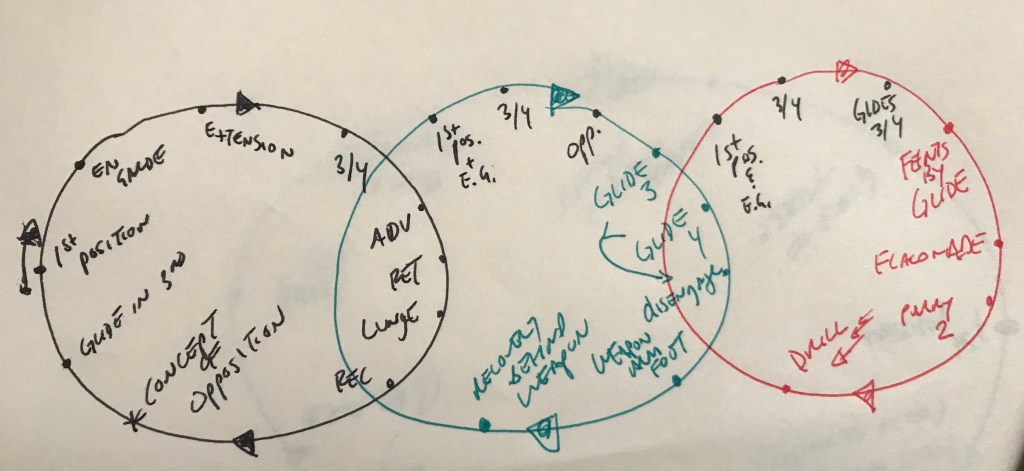 1st
POSITION
EN
GARDE
EXTENSION
3/4
ADV
RET
LUNGE
REC
CONCEPT
OF
OPPOSITION
GLIDE IN 3RD
1st
pos.
+
E.G.
3/4
OPP.
GLIDE
3
GLIDE
4
disengage
WEAPON
ARM
FOOT
RECOVERY
BEHIND
WEAPON
1st
pos.
&
E.G.
3/4
GLIDES
3/4
FEINTS
BY
GLIDE
FLACONADE
PARRY
2
DRILL